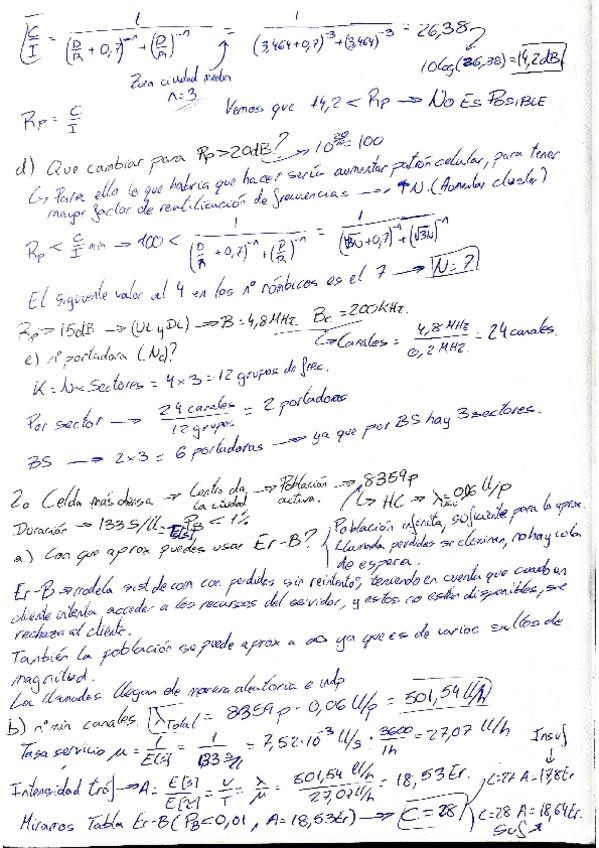 C/I = 1 / ((D/R + 0,7)^-n + (D/R)^-n) = 1 / ((3,464+0,7)^-3 + (3,464)^-3) = 26,38
10log(26,38) = 14,2dB
Zona ciudad media n=3
Rp = C/I Vemos que 14,2 < Rp → NO ES POSIBLE
d) Que cambiar para Rp>20dB? → 10^(20/10) = 100
↳ Para ello lo que habría que hacer sería aumentar patrón celular, para tener
mayor factor de reutilización de frecuencias → ↑N. (Aumentar cluster)
Rp < C/I min → 100 < 1 / ((D/R + 0,7)^-n + (D/R)^-n) = 1 / ((√3N + 0,7)^-n + (√3N)^-n)
El siguiente valor al 4 en los nº rómbicos es el 7 → N=7
Rp > 15dB → (UL y DL) → B = 4,8MHz. Bc = 200KHz.
↳ Canales = 4,8 MHz / 0,2 MHz = 24 canales.
e) nº portadora (Nc)?
K = N × Sectores = 4 × 3 = 12 grupos de frec.
Por sector → 24 canales / 12 grupos = 2 portadoras
BS → 2×3 = 6 portadoras → ya que por BS hay 3 sectores.
2. Celda más densa → Centro de la ciudad → Población activa. → 8359p
↳ HC → λ = 0,06 ll/p
Duración → 133 s/ll = E[s] PB < 1%
a.) Con que aprox puedes usar Er-B? { Población infinita, suficiente para la aprox.
Llamada perdidas se eliminan, no hay cola
de espera.
Er-B → modela sist de com con perdidas sin reintento, teniendo en cuenta que cuando un
cliente intenta acceder a los recursos del servidor, y estos no están disponibles, se
rechaza al cliente.
También la población se puede aprox a ∞ ya que es de varios de
magnitud.
La llamadas llegan de manera aleatoria e indp
b) nº min canales. λTotal = 8359p · 0,06 ll/p = 501,54 ll/h
Tasa servicio μ = 1/E[s] = 1/133 s = 7,52·10^-3 ll/s · 3600/1h = 27,07 ll/h
Intensidad tráf → A = E[s]/E[τ] = ν/τ = λ/μ = 501,54 ll/h / 27,07 ll/h = 18,53 Er.
Insuf ↓ C=27 A=17,8Er
Miramos Tabla Er-B (PB<0,01, A=18,53Er) → C=28 C=28 A=18,64Er. Suf